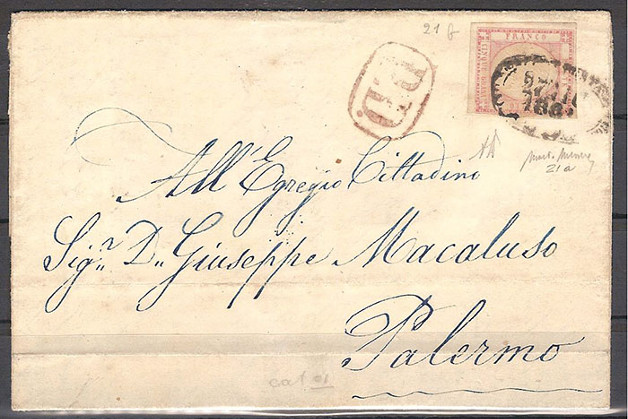 21 f
FRANCO
P.D.
All'Egregio Cittadino
21a
Sig.r D.n Giuseppe Macaluso
Palermo
cat